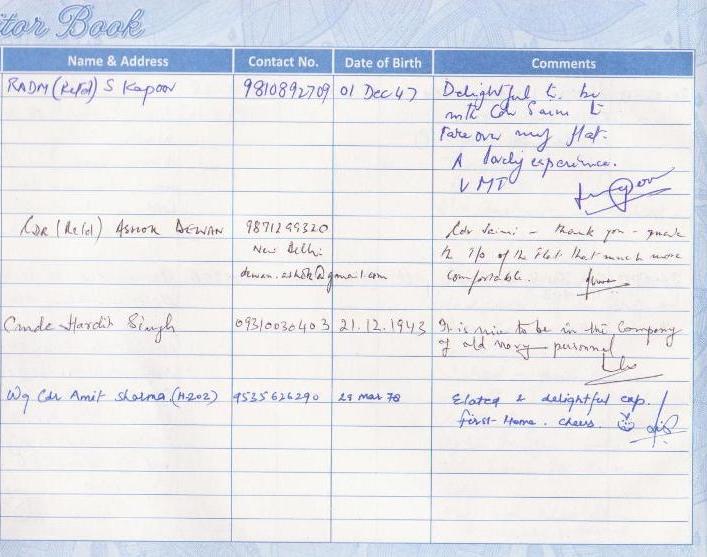 itor Book
Name & Address Contact No. Date of Birth Comments
RADM (Retd) S Kapoor 9810892709 01 Dec 47 Delightful to be
with Cdr Saini to
take over my flat.
A lovely experience.
VMT
CDR (Retd) ASHOK DEWAN 9871299320 Cdr Saini - thank you - made
New Delhi. the T/O of the flat that much more
dewan.ashok@gmail.com comfortable.
Cmde Hardit Singh 09310030403 21.12.1943 It is nice to be in the Company
of old navy personnel
Wg Cdr Amit Sharma.(H-202) 9535626290 29 Mar 78 Elated & delightful exp.
first-Home. cheers.